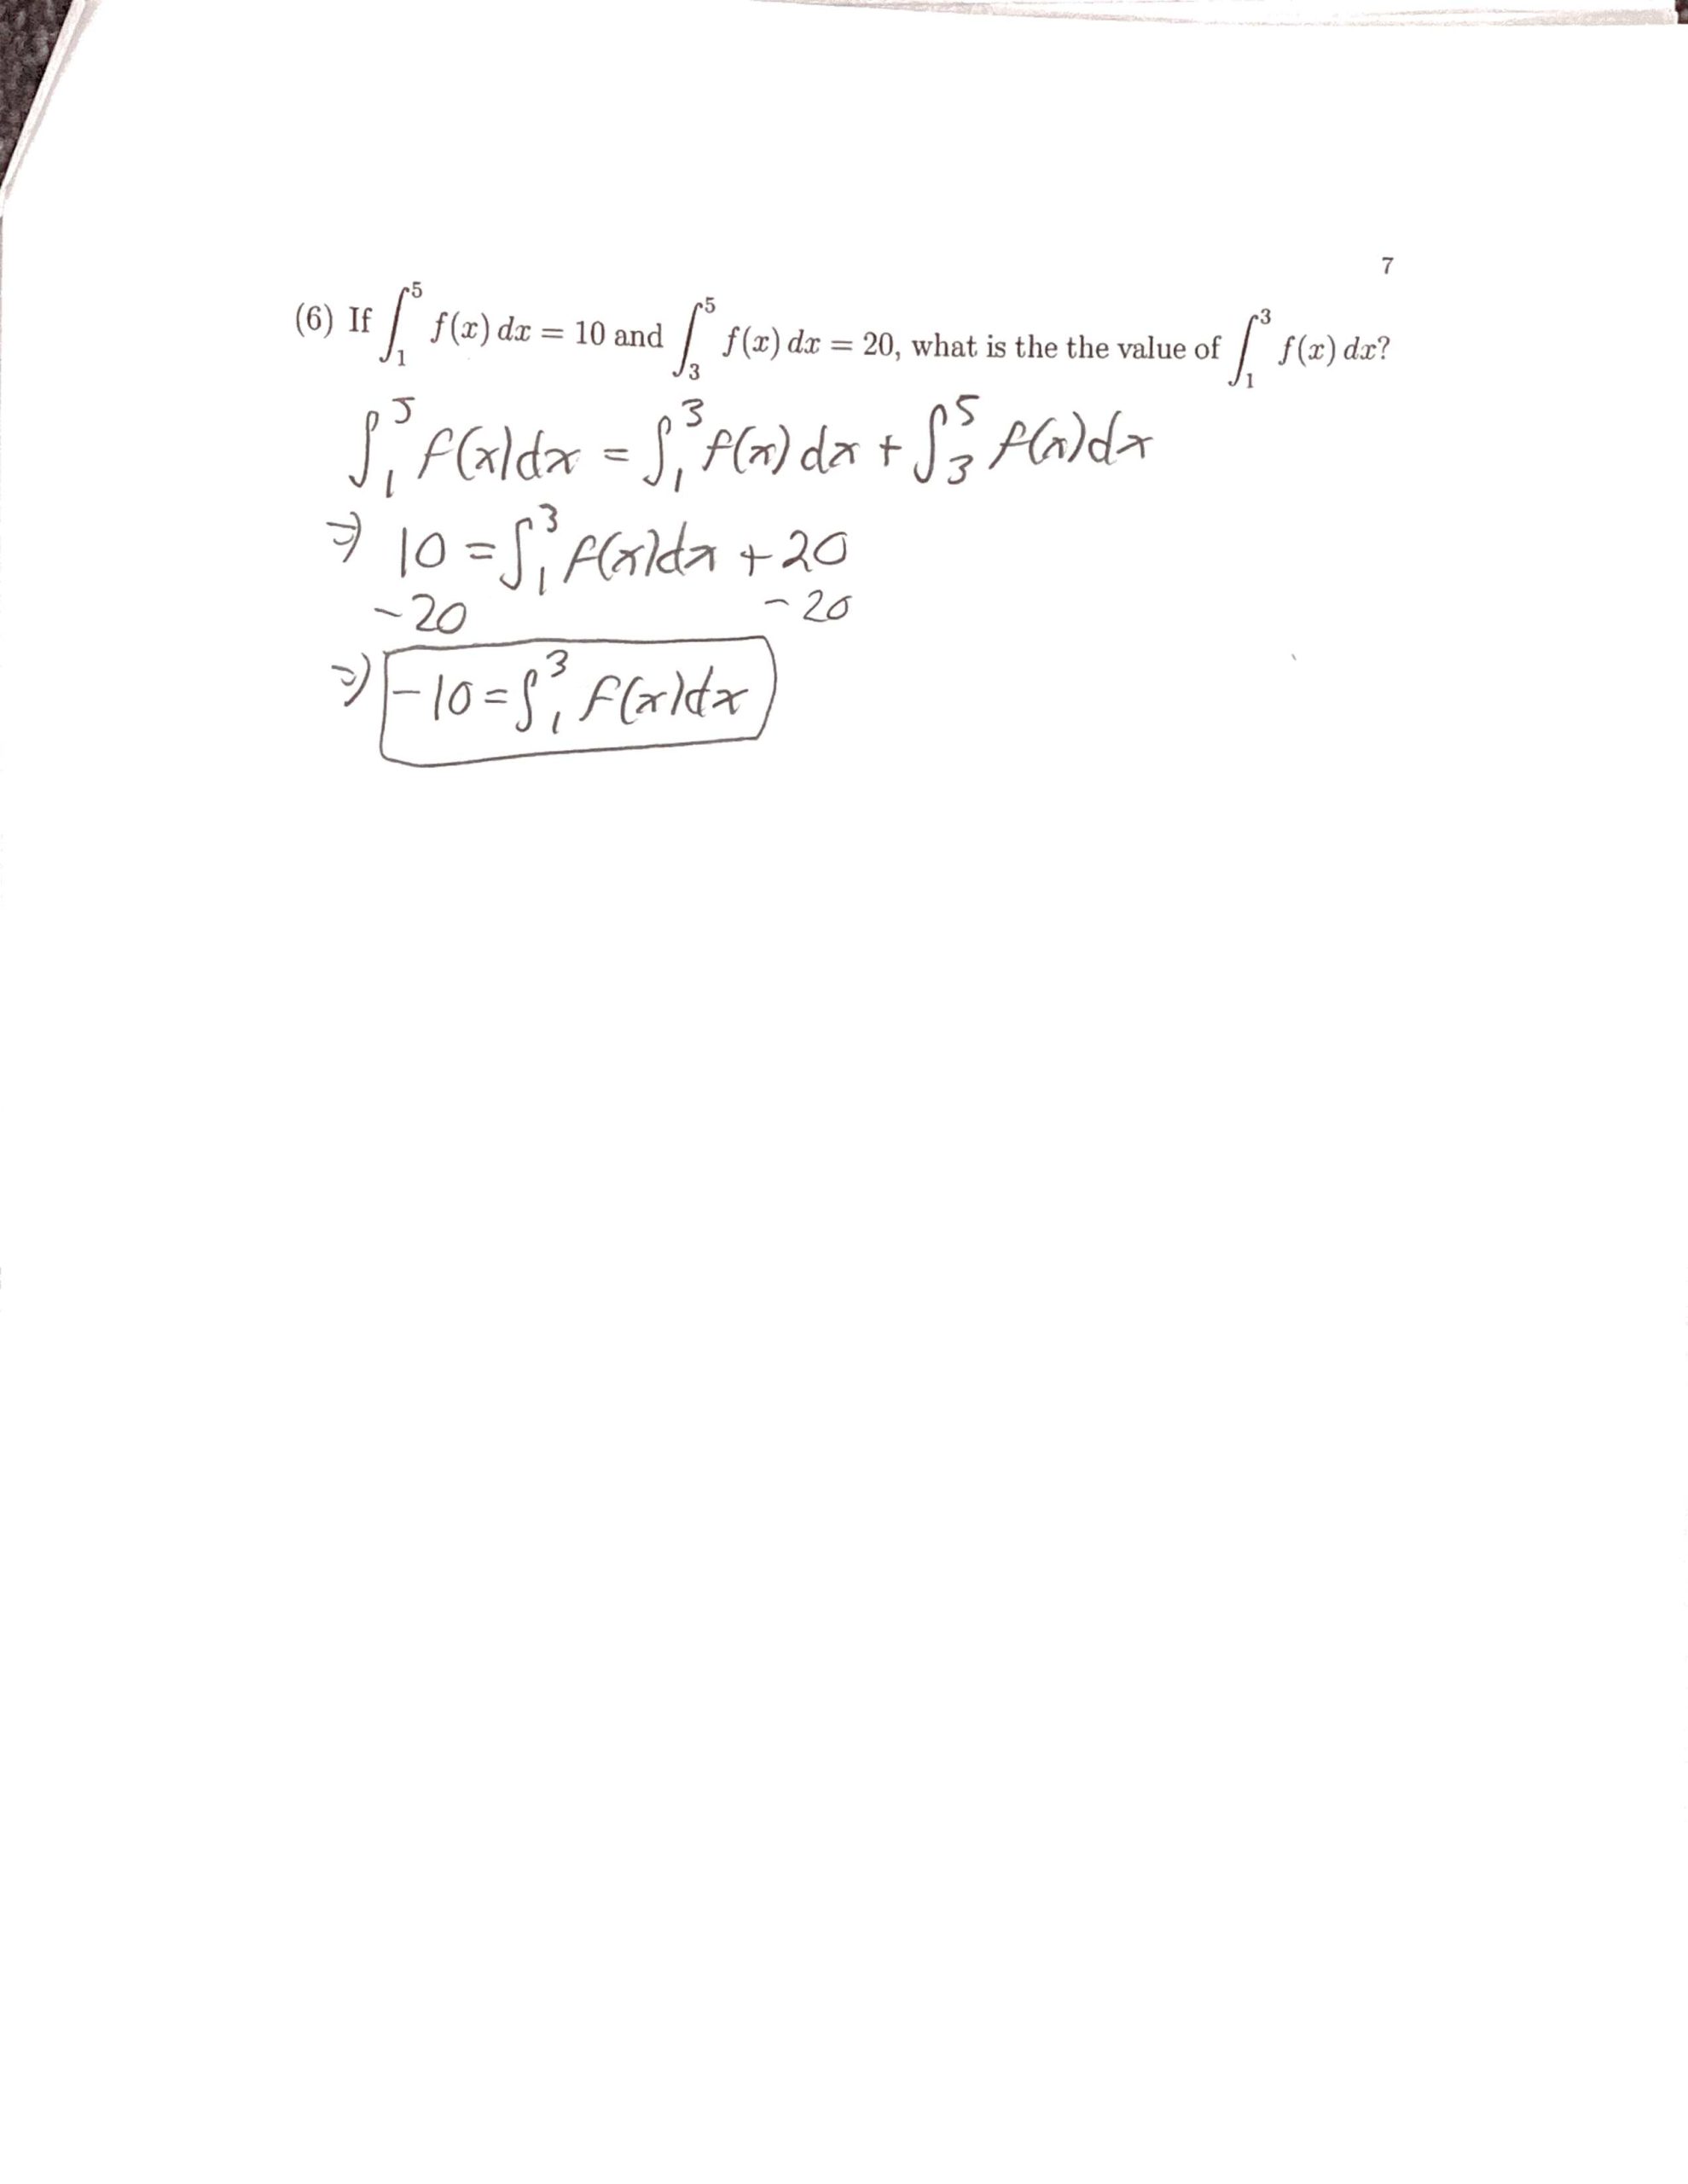 7
(6) If ∫₁⁵ f(x) dx = 10 and ∫₃⁵ f(x) dx = 20, what is the the value of ∫₁³ f(x) dx?
∫₁⁵ f(x)dx = ∫₁³ f(x) dx + ∫₃⁵ f(x)dx
⇒ 10 = ∫₁³ f(x)dx + 20
-20 -20
⇒ -10 = ∫₁³ f(x)dx